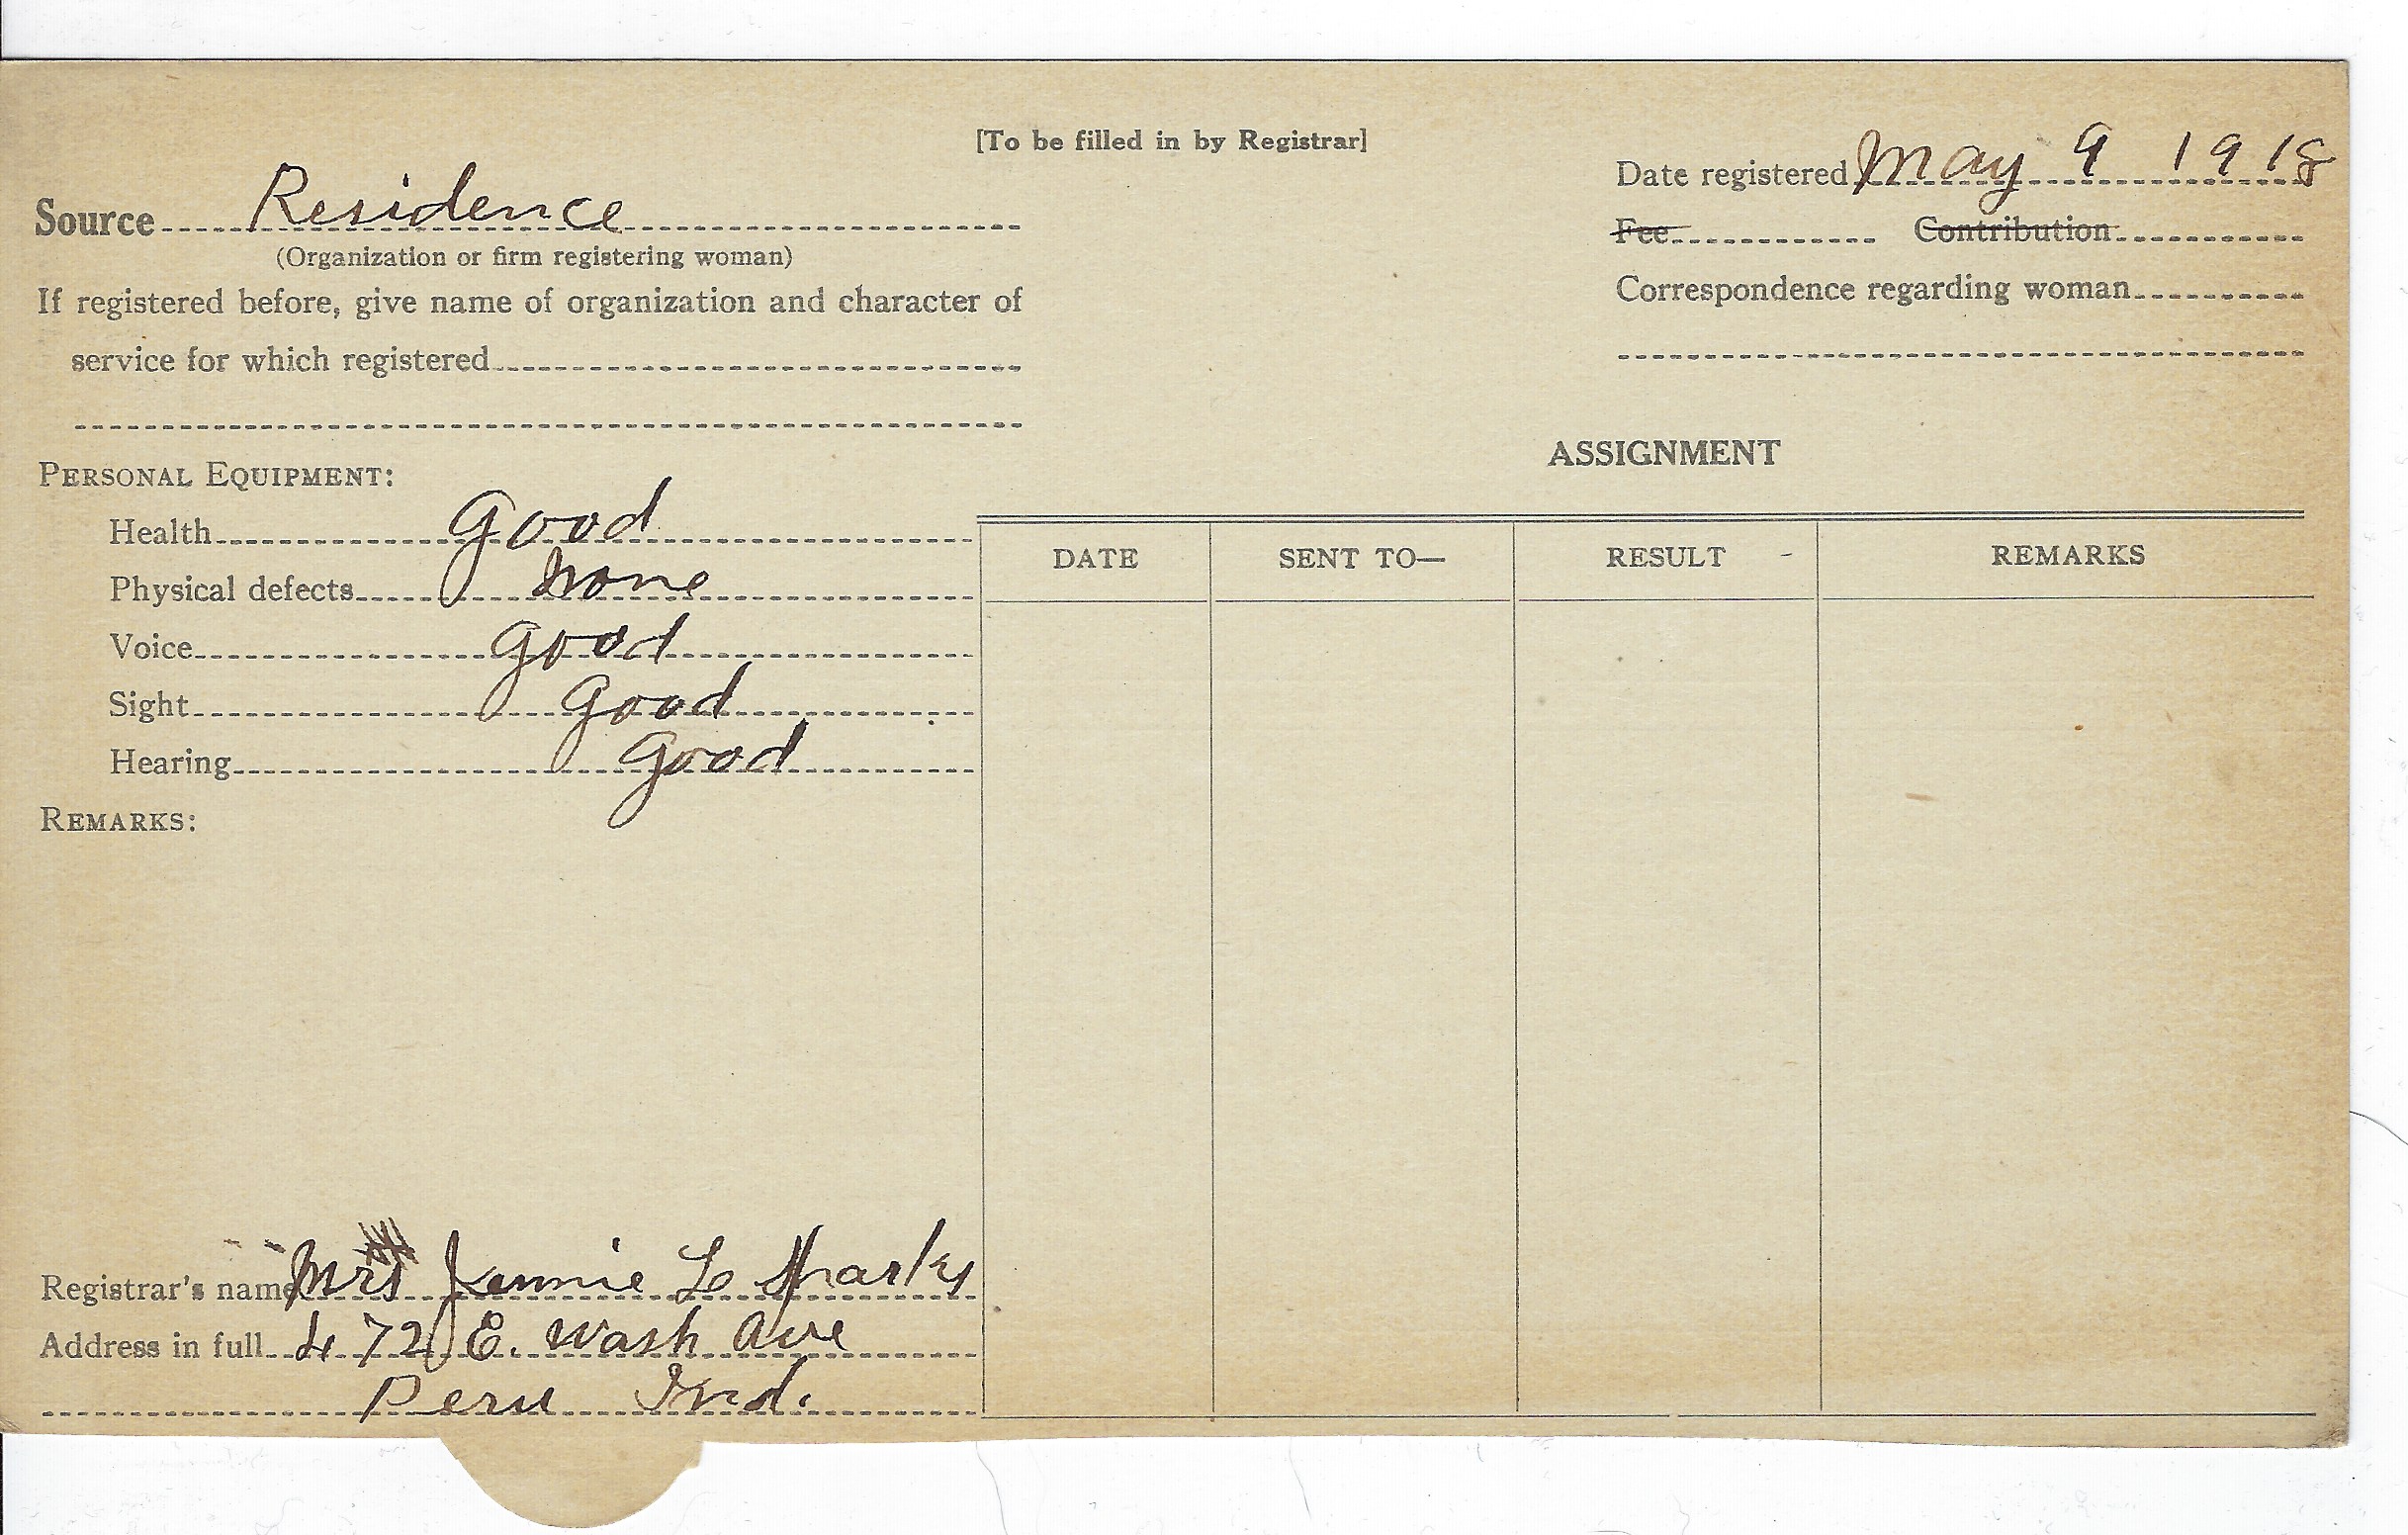 [To be filled in by Registrar]
Date registered May 9 1918
Source Residence
(Organization or firm registering woman)
Fee Contribution
If registered before, give name of organization and character of
service for which registered
Correspondence regarding woman
ASSIGNMENT
PERSONAL EQUIPMENT:
Health Good
Physical defects None
Voice Good
Sight Good
Hearing Good
DATE SENT TO— RESULT REMARKS
REMARKS:
Registrar's name Mrs Jennie L Sparks
Address in full 472 E. Wash Ave
Peru Ind.